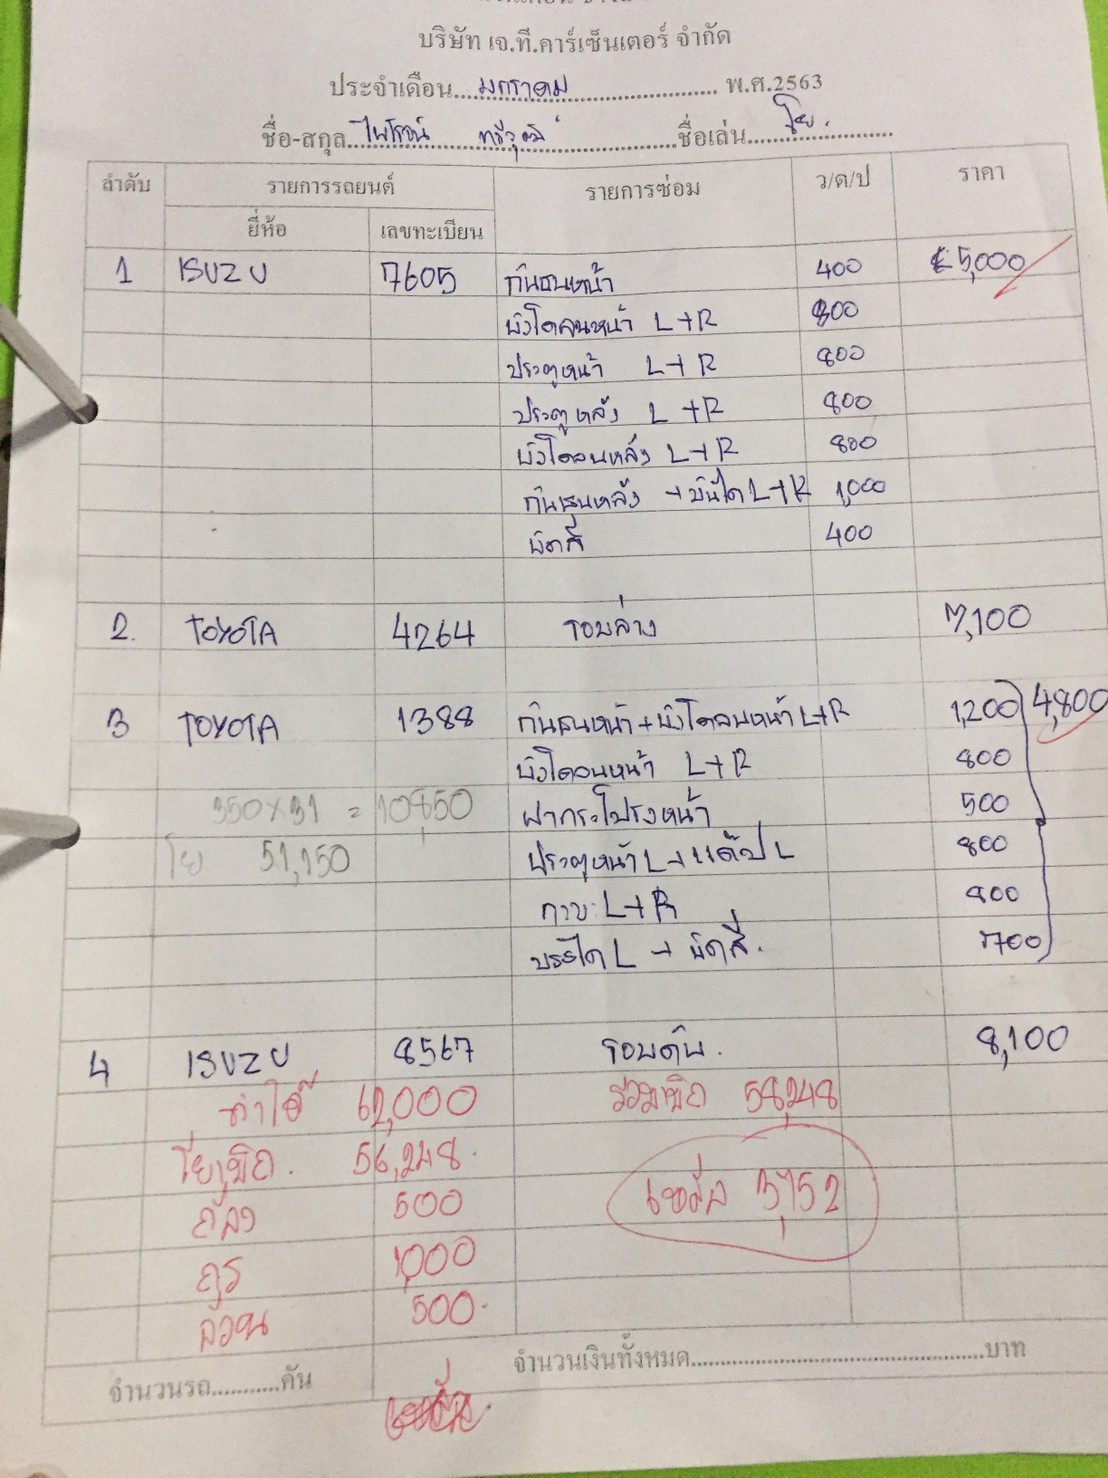 บริษัท เจ.ที.คาร์เซ็นเตอร์ จำกัด
ประจำเดือน...มกราคม... พ.ศ.2563
ชื่อ-สกุล ไพโรจน์ ...ชื่อเล่น...โย.
ลำดับ รายการรถยนต์ รายการซ่อม ว/ด/ป ราคา
ยี่ห้อ เลขทะเบียน
1 ISUZU 7605 กันชนหน้า 400 5,000
บังโคลนหน้า L+R 800
ประตูหน้า L+R 800
ประตูหลัง L+R 800
บังโคลนหลัง L+R 800
กันชนหลัง + บันได L+R 1,000
ขัดสี 400
2. TOYOTA 4264 รอบล่าง 7,100
3 TOYOTA 1388 กันชนหน้า+บังโคลนหน้า L+R 1,200 4,800
บังโคลนหน้า L+R 800
350x31 = 10,850 ฝากระโปรงหน้า 500
โย 51,150 ประตูหน้า L+แค๊ป L 800
กาบ L+R 800
บรรได L + ขัดสี. 700
4 ISUZU 8567 รอบคัน. 8,100
ค่าใช้ 62,000 รวมเบิก 58,248
โยเบิก. 56,248.
500 เหลือ 3,752
1,000
500.
จำนวนรถ...........คัน จำนวนเงินทั้งหมด...........บาท